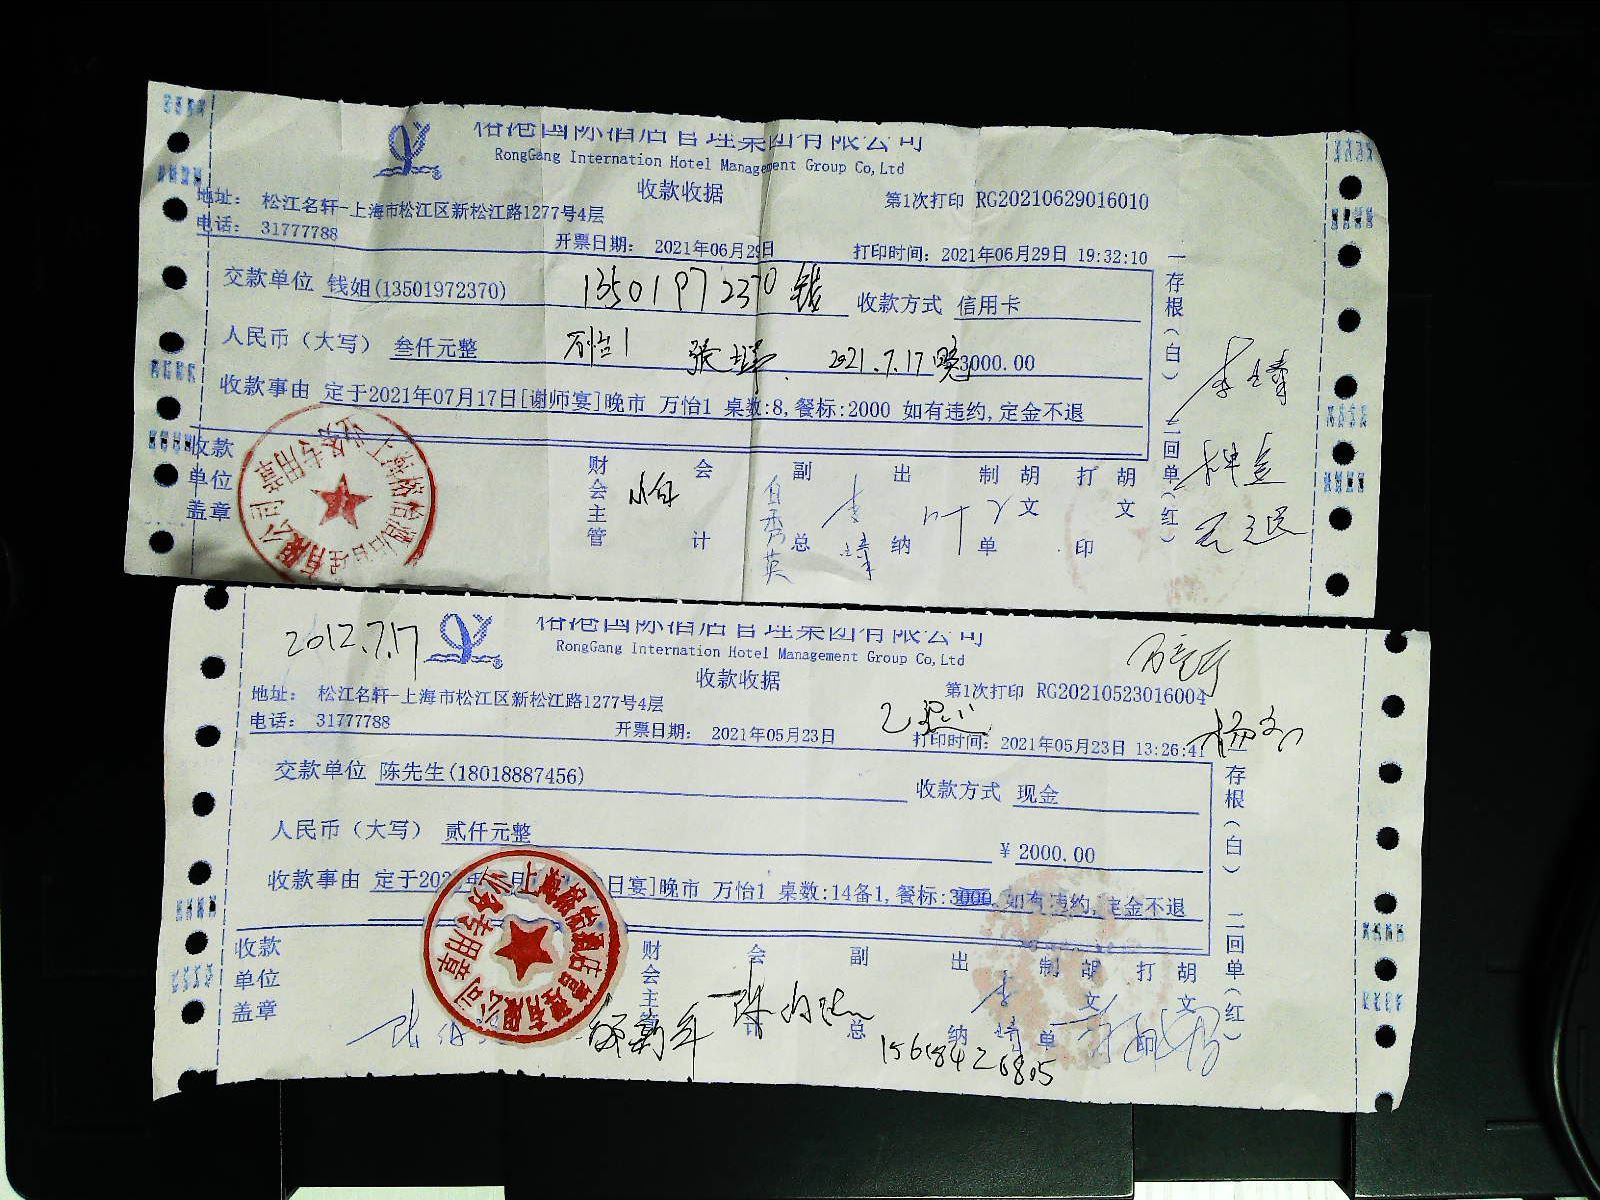 榕港国际酒店管理集团有限公司
RongGang Internation Hotel Management Group Co,Ltd
收款收据
第1次打印 RG20210629016010
地址： 松江名轩-上海市松江区新松江路1277号4层
电话： 31777788
开票日期： 2021年06月29日
打印时间：2021年06月29日 19:32:10
交款单位 钱姐(13501972370) 13501972370 钱 收款方式 信用卡
人民币（大写） 叁仟元整 万怡1 2021.7.17晚 3000.00
收款事由 定于2021年07月17日[谢师宴]晚市 万怡1 桌数:8,餐标:2000 如有违约,定金不退
存根（白） 二回单（红）
收款单位盖章
财会主管 会计 副总 出纳 制单 胡文 打印 胡文
李靖
押金
不退
2012.7.17
榕港国际酒店管理集团有限公司
RongGang Internation Hotel Management Group Co,Ltd
收款收据
第1次打印 RG20210523016004
地址： 松江名轩-上海市松江区新松江路1277号4层
电话： 31777788
开票日期： 2021年05月23日
打印时间：2021年05月23日 13:26:41
交款单位 陈先生(18018887456) 收款方式 现金
人民币（大写） 贰仟元整 ¥ 2000.00
收款事由 定于202 年 月 日宴]晚市 万怡1 桌数:14备1,餐标:3000 如有违约,定金不退
存根（白） 二回单（红）
收款单位盖章
财会主管 会计 副总 出纳 制单 胡文 打印 胡文
李靖
15618426805